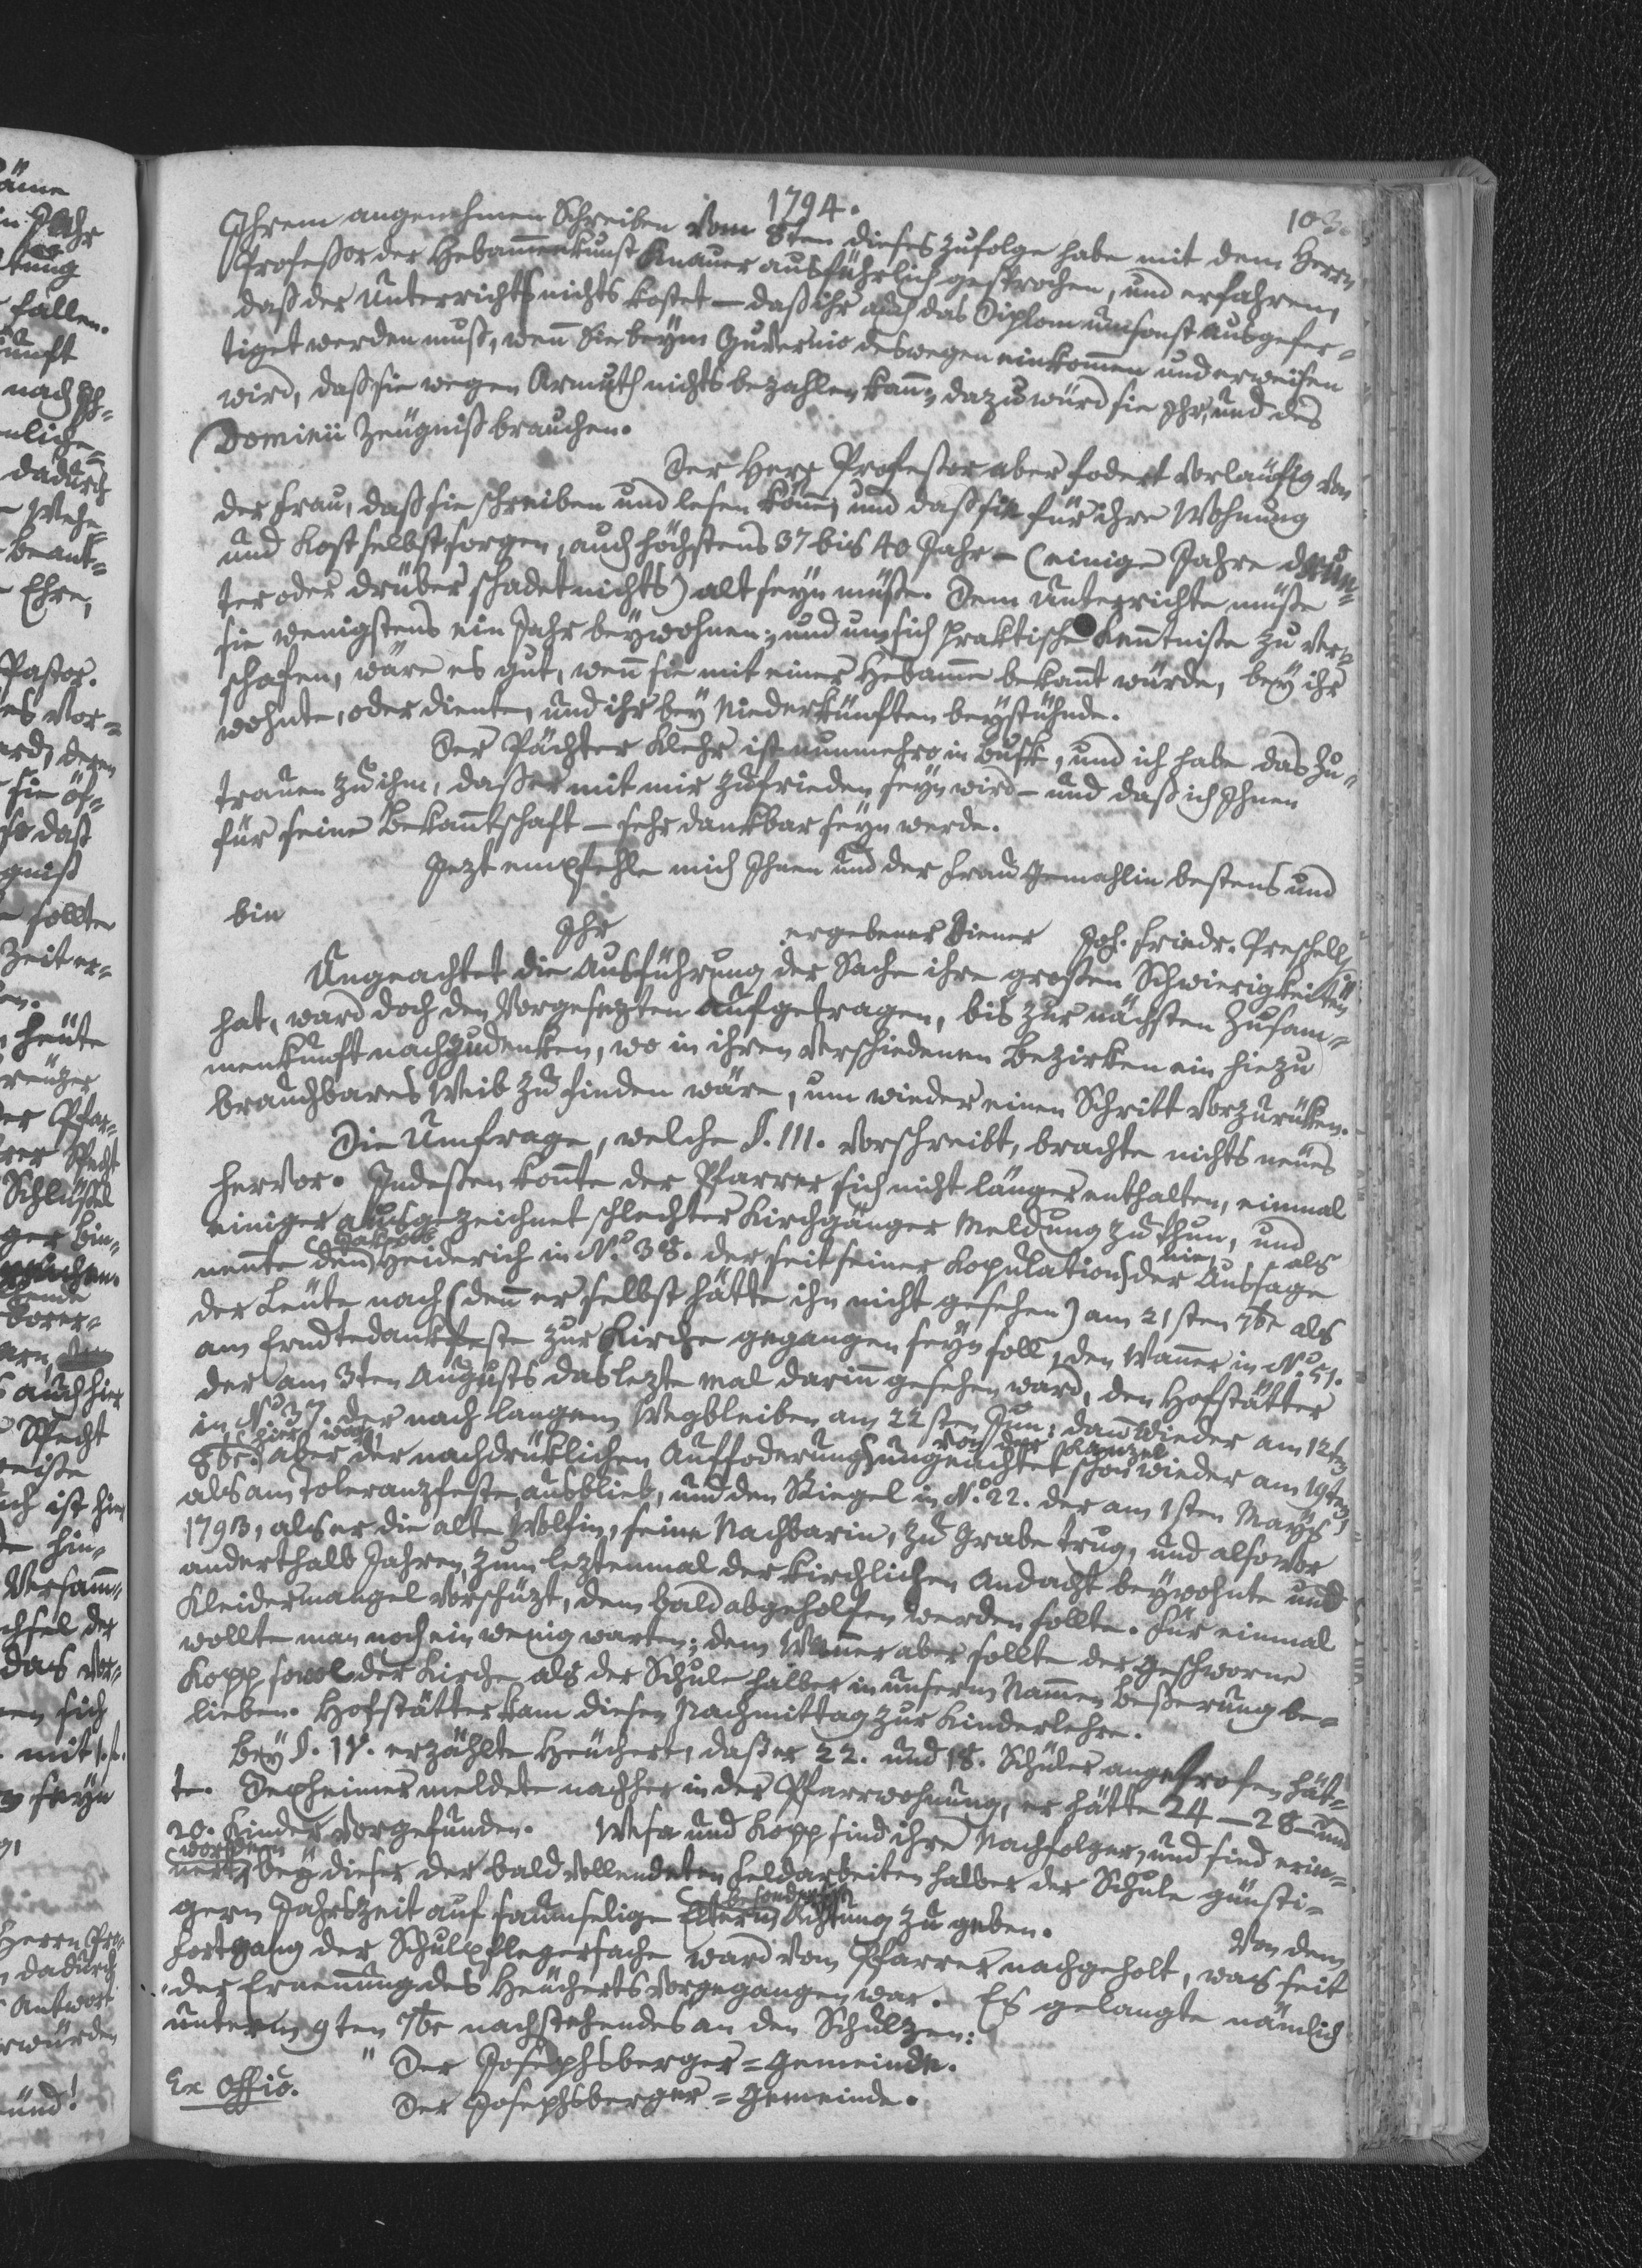 1794.
103.
Ihrem angenehmen Schreiben vom 8ten dieses zufolge habe mit dem Herrn
Professor der Hebammenkunst Knauer ausführlich gesprochen, und erfahren,
daß der Unterricht nichts kostet — daß ihr auch das Diplom umsonst ausgefer=
tiget werden muß, wenn Sie beym Gubernio deswegen einkommen und erweisen
wird, daß sie wegen Armuth nichts bezahlen kann; dazu würd sie Ihr, und des
Dominii Zeugniß brauchen.
Der Herr Professor aber fodert vorläufig von
der Frau, daß sie schreiben und lesen könne, und daß sie für ihre Wohnung
und Kost selbst sorgen, auch höchstens 37 bis 40 Jahr — (einige Jahre drun=
ter oder drüber schadet nichts) alt seyn müsse. Dem Unterrichte müsse
sie wenigstens ein Jahr beywohnen; und um sich praktische Kenntnisse zu ver=
schafen, wäre es gut, wenn sie mit einer Hebamme bekannt würde, bey ihr
wohnte, oder diente, und ihr bey Niederkünften beystühnde.
Der Pächter Klehr ist nunmehro in Busk, und ich habe das Zu=
trauen zu ihm, daß er mit mir zufrieden seyn wird — und daß ich Ihnen
für seine Bekanntschaft — sehr dankbar seyn werde.
Jezt empfehle mich Ihnen und der Frau Gemahlin bestens und
bin
Ihr ergebener Diener Joh. Friedr. Preschell
Ungeachtet die Ausführung der Sache ihre großen Schwierigkeiten
hat, ward doch den Vorgesezten aufgetragen, bis zur nächsten Zusam=
menkunft nachzudenken, wo in ihren verschiedenen Bezirken ein hiezu
brauchbares Weib zu finden wäre, um wieder einen Schritt vorzurüken.
Die Umfrage, welche §. III. vorschreibt, brachte nichts neues
hervor. Indessen konnte der Pfarrer sich nicht länger enthalten, einmal
einiger ausgezeichnet schlechter Kirchgänger Meldung zu thun, und
nennte den Jakob Heiderich in N.° 38. der seit seiner Kopulation nie, als der Aussage
der Leute nach (denn er selbst hätte ihn nicht gesehen) am 21sten 7br als
am Erndtedankfeste zur Kirche gegangen seyn soll, den Wanner in N.° 51.
der am 3ten Augusts das lezte mal darinn gesehen ward, den Hofstätter
in N.° 37. der nach langem Wegbleiben am 22sten Jun: dann wieder am 12ten
8br. hier war, aber der nachdrüklichen Auffoderung von der Kanzel ungeachtet schon wieder am 19ten
als am Toleranzfeste, ausblieb, und den Striegel in N.° 22. der am 1sten Mays
1793, als er die alte Wolfin, seine Nachbarin, zu Grabe trug, und also vor
anderthalb Jahren, zum leztenmal der kirchlichen Andacht beywohnte und
Kleidermangel vorschüzt, dem bald abgeholfen werden sollte. Für einmal
wollte man noch ein wenig warten; dem Wanner aber sollte der Geschworne
Kopp sowol der Kirche als der Schule halber in unserm Nammen Besserung be=
lieben. Hofstätter kam diesen Nachmittag zur Kinderlehre.
Bey §. IV. erzählte Heuchert, daß er 22. und 18. Schüler angetrofen hät=
te. Dexheimer meldete nachher in der Pfarrwohnung, er hätte 24 — 28 — und
20. Kinder vorgefunden. Wesa und Kopp sind ihre Nachfolger, und sind erin=
nert worden, bey dieser der bald vollendeten Feldarbeiten halber der Schule günsti=
gern Jahrszeit auf saumselige Eltern besonders Achtung zu geben.
Von dem
Fortgang der Schulpflegersache ward vom Pfarrer nachgeholt, was seit
der Ernennung des Heucherts vorgegangen war. Es gelangte nämlich
unterm 9ten 7br nachstehendes an den Schulzen:
" Der Josephsberger = Gemeinde.
Ex Offio. Der Josephsberger = Gemeinde.